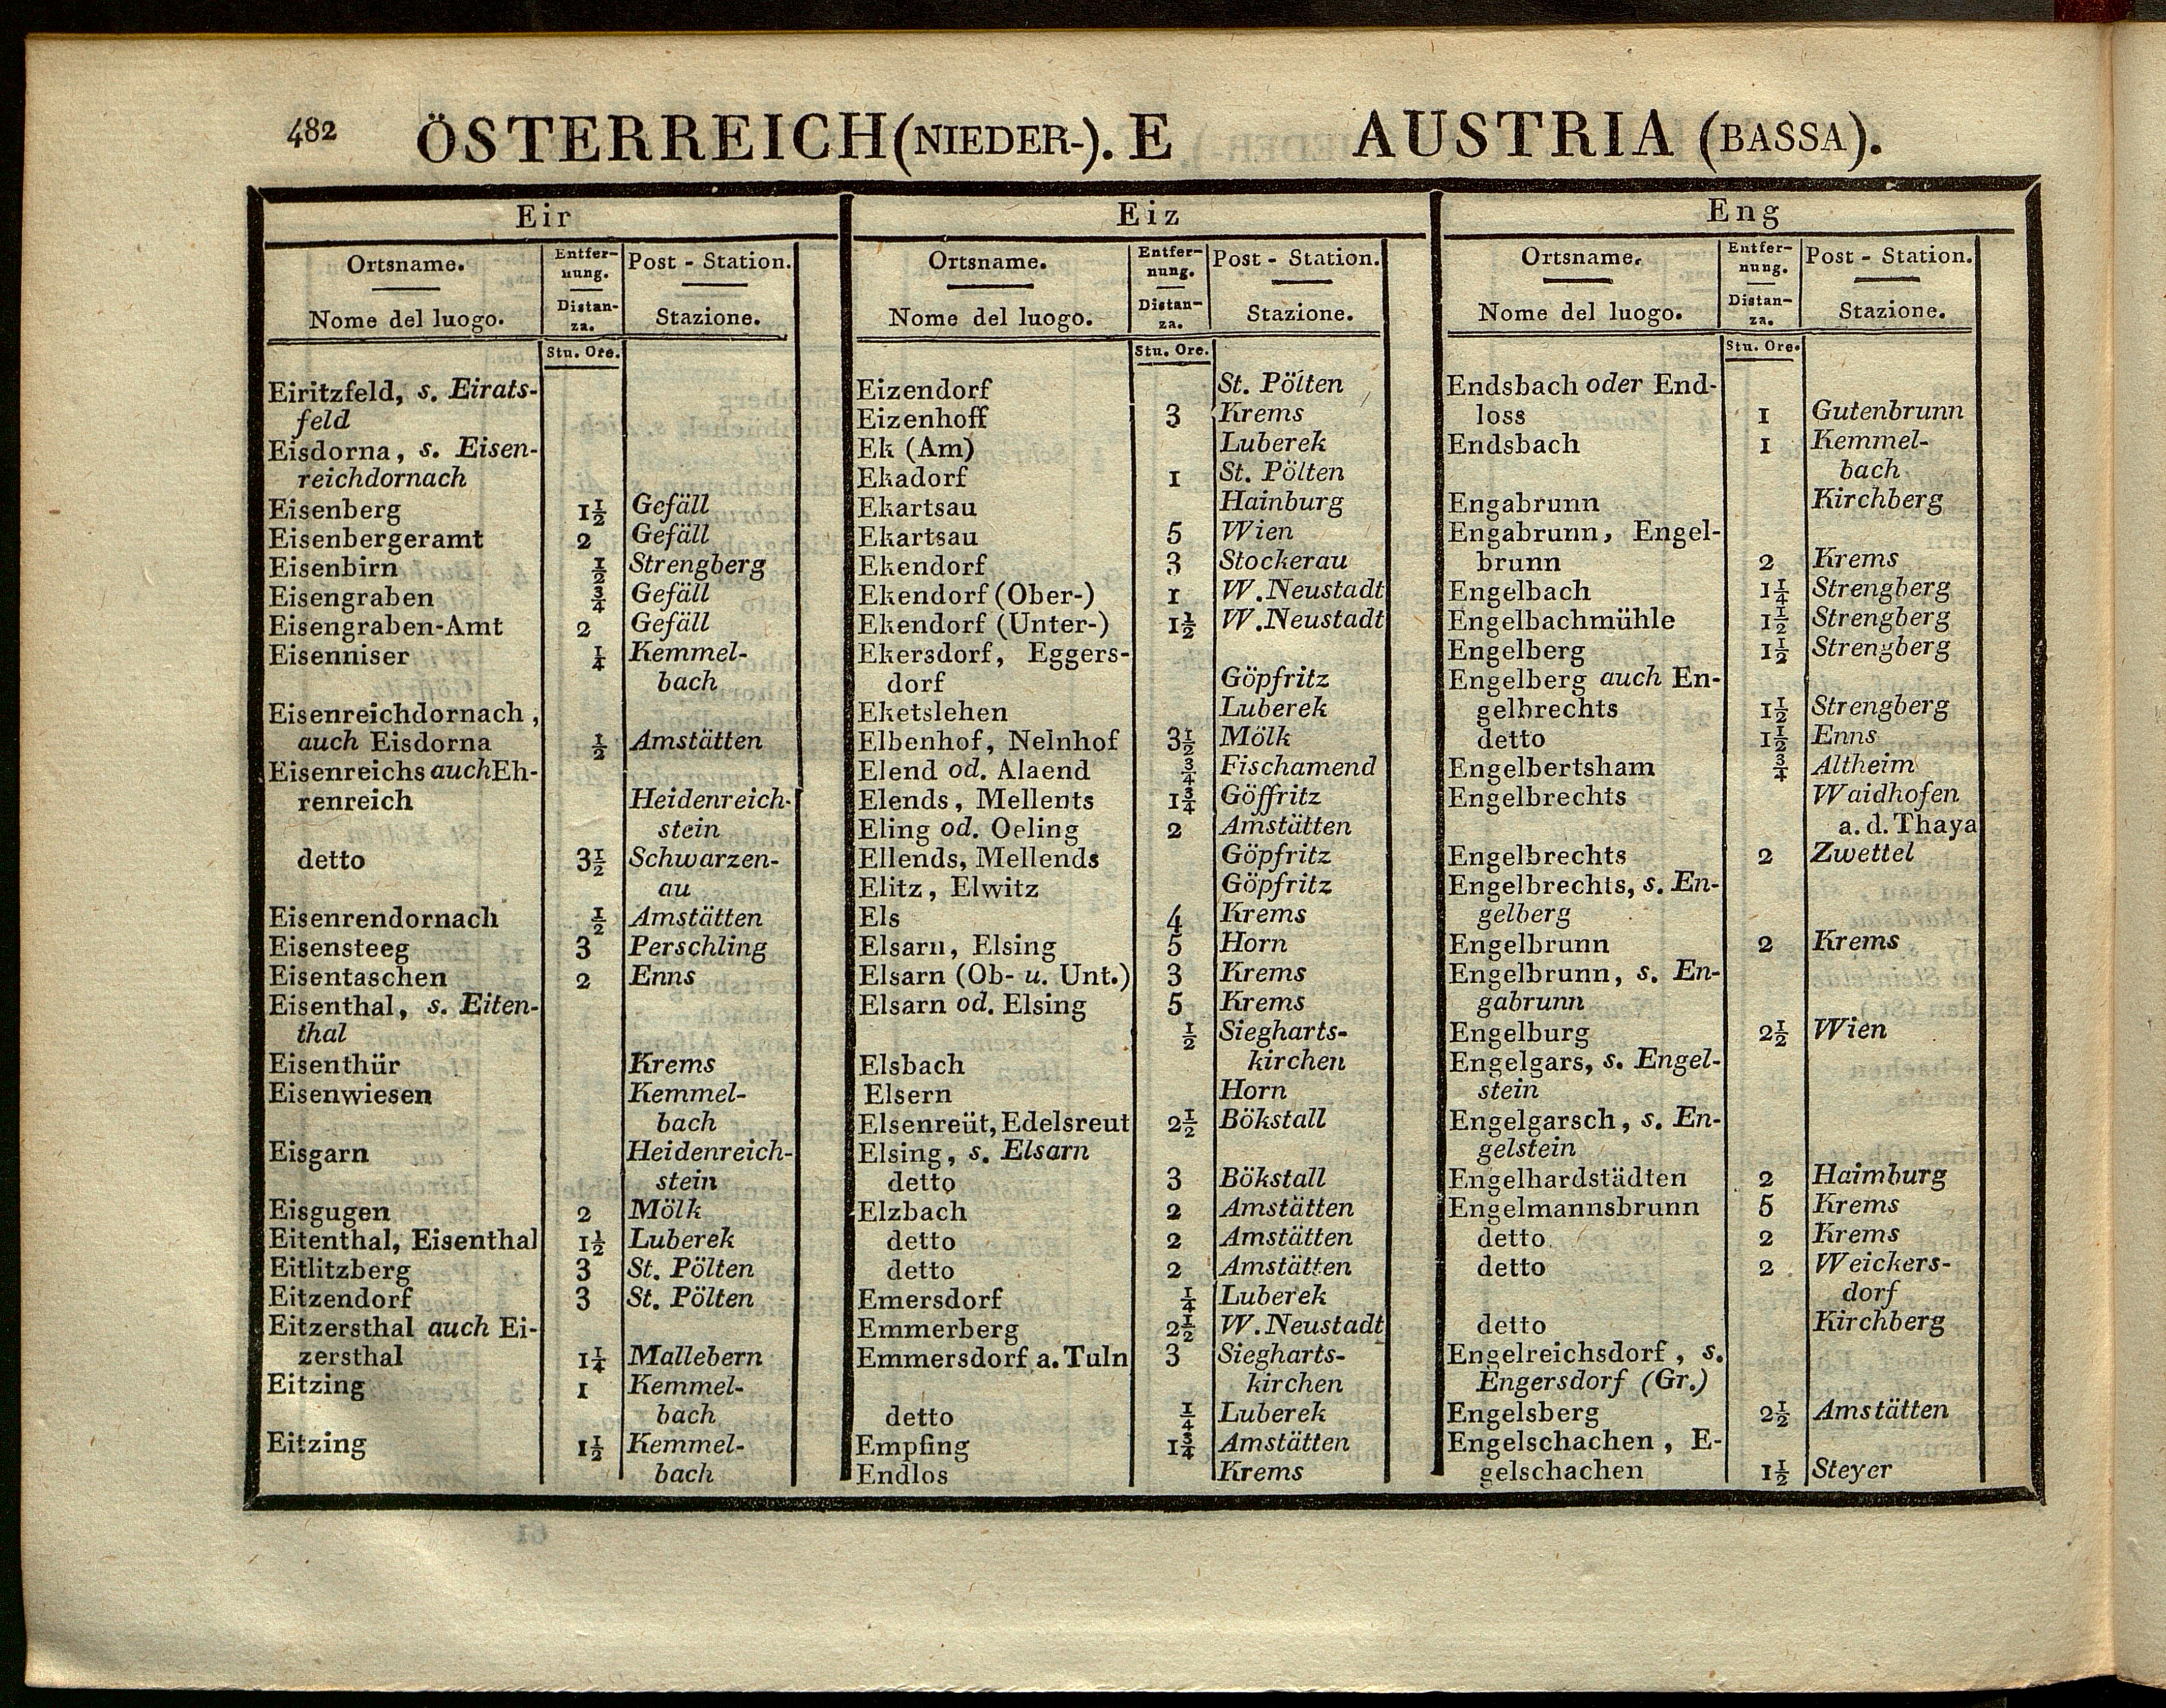 482 ÖSTERREICH (NIEDER-). E AUSTRIA (BASSA).
Eir
Ortsname. Entfer- Post - Station.
nung.
Nome del luogo. Distan- Stazione.
za.
Stu. Ore.
Eiritzfeld, s. Eirats-
feld
Eisdorna, s. Eisen-
reichdornach
Eisenberg 1½ Gefäll
Eisenbergeramt 2 Gefäll
Eisenbirn ½ Strengberg
Eisengraben ¾ Gefäll
Eisengraben-Amt 2 Gefäll
Eisenniser ¼ Kemmel-
bach
Eisenreichdornach,
auch Eisdorna ½ Amstätten
Eisenreichs auch Eh-
renreich Heidenreich-
stein
detto 3½ Schwarzen-
au
Eisenrendornach ½ Amstätten
Eisensteeg 3 Perschling
Eisentaschen 2 Enns
Eisenthal, s. Eiten-
thal
Eisenthür Krems
Eisenwiesen Kemmel-
bach
Eisgarn Heidenreich-
stein
Eisgugen 2 Mölk
Eitenthal, Eisenthal 1½ Luberek
Eitlitzberg 3 St. Pölten
Eitzendorf 3 St. Pölten
Eitzersthal auch Ei-
zersthal 1¼ Mallebern
Eitzing 1 Kemmel-
bach
Eitzing 1½ Kemmel-
bach
Eiz
Ortsname. Entfer- Post - Station.
nung.
Nome del luogo. Distan- Stazione.
za.
Stu. Ore.
Eizendorf St. Pölten
Eizenhoff 3 Krems
Ek (Am) Luberek
Ekadorf 1 St. Pölten
Ekartsau Hainburg
Ekartsau 5 Wien
Ekendorf 3 Stockerau
Ekendorf (Ober-) 1 W. Neustadt
Ekendorf (Unter-) 1½ W. Neustadt
Ekersdorf, Eggers-
dorf Göpfritz
Eketslehen Luberek
Elbenhof, Nelnhof 3½ Mölk
Elend od. Alaend ¾ Fischamend
Elends, Mellents 1¾ Göffritz
Eling od. Oeling 2 Amstätten
Ellends, Mellends Göpfritz
Elitz, Elwitz Göpfritz
Els 4 Krems
Elsarn, Elsing 5 Horn
Elsarn (Ob- u. Unt.) 3 Krems
Elsarn od. Elsing 5 Krems
½ Siegharts-
Elsbach kirchen
Elsern Horn
Elsenreüt, Edelsreut 2½ Bökstall
Elsing, s. Elsarn
detto 3 Bökstall
Elzbach 2 Amstätten
detto 2 Amstätten
detto 2 Amstätten
Emersdorf ¼ Luberek
Emmerberg 2½ W. Neustadt
Emmersdorf a. Tuln 3 Siegharts-
kirchen
detto ¼ Luberek
Empfing 1¾ Amstätten
Endlos Krems
Eng
Ortsname. Entfer- Post - Station.
nung.
Nome del luogo. Distan- Stazione.
za.
Stu. Ore.
Endsbach oder End-
loss 1 Gutenbrunn
Endsbach 1 Kemmel-
bach
Engabrunn Kirchberg
Engabrunn, Engel-
brunn 2 Krems
Engelbach 1¼ Strengberg
Engelbachmühle 1½ Strengberg
Engelberg 1½ Strengberg
Engelberg auch En-
gelbrechts 1½ Strengberg
detto 1½ Enns
Engelbertsham ¾ Altheim
Engelbrechts Waidhofen
a. d. Thaya
Engelbrechts 2 Zwettel
Engelbrechts, s. En-
gelberg
Engelbrunn 2 Krems
Engelbrunn, s. En-
gabrunn
Engelburg 2½ Wien
Engelgars, s. Engel-
stein
Engelgarsch, s. En-
gelstein
Engelhardstädten 2 Haimburg
Engelmannsbrunn 5 Krems
detto 2 Krems
detto 2 Weickers-
dorf
detto Kirchberg
Engelreichsdorf, s.
Engersdorf (Gr.)
Engelsberg 2½ Amstätten
Engelschachen, E-
gelschachen 1½ Steyer